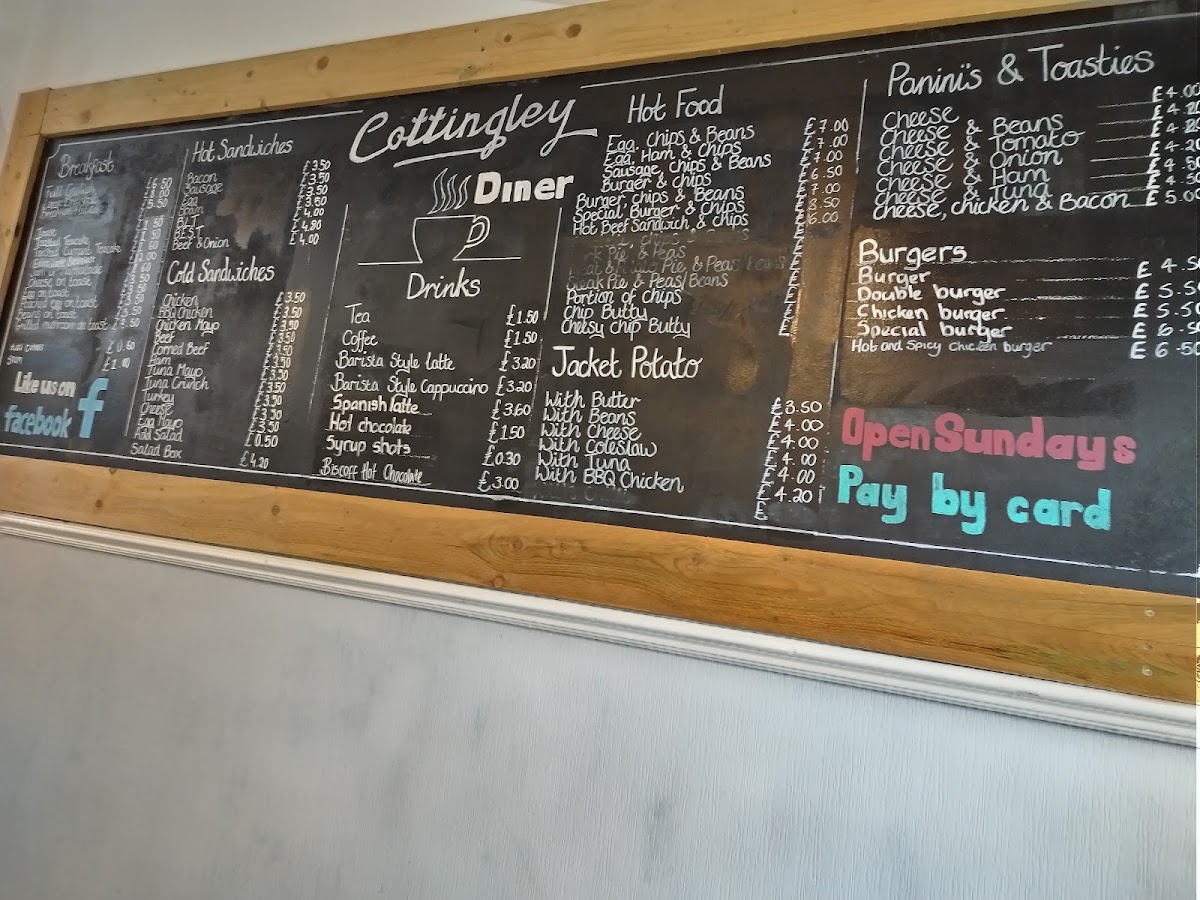 Cottingley
Diner
Breakfast
Full English £6.50
£8.00
£5.50
Toast
Toasted Teacake
Cheese on toast
Egg on toast
Beans on toast
Like us on
facebook f
Hot Sandwiches
Bacon £3.50
Sausage £3.50
Egg £3.50
Spam £3.50
B.L.T £4.00
B.E.S.T £4.80
Beef & Onion £4.00
Cold Sandwiches
Chicken £3.50
BBQ Chicken £3.50
Chicken Mayo £3.50
Beef £3.50
Corned Beef £3.50
Ham £3.50
Tuna Mayo £3.50
Tuna Crunch £3.50
Turkey £3.50
Cheese £3.50
Egg Mayo £3.50
Add Salad £0.50
Salad Box £4.20
Drinks
Tea £1.50
Coffee £1.50
Barista Style latte £3.20
Barista Style Cappuccino £3.20
Spanish latte £3.60
Hot chocolate £1.50
Syrup shots £0.30
Biscoff Hot Chocolate £3.00
Hot Food
Egg, Chips & Beans £7.00
Egg, Ham & Chips £7.00
Sausage, Chips & Beans £7.00
Burger & chips £6.50
Burger, chips & Beans £7.00
Special Burger & Chips £8.50
Hot Beef Sandwich & Chips £6.00
Pie & Peas £
Pie & Peas £
Steak Pie & Peas/Beans £
Portion of chips £
Chip Butty £
Cheesy chip Butty £
Jacket Potato
With Butter £3.50
With Beans £4.00
With Cheese £4.00
With Coleslaw £4.00
With Tuna £4.00
With BBQ Chicken £4.20
£
Panini's & Toasties
Cheese £4.00
Cheese & Beans £4.20
Cheese & Tomato £4.20
Cheese & Onion £4.20
Cheese & Ham £4.50
Cheese & Tuna £4.50
Cheese, Chicken & Bacon £5.00
Burgers
Burger £4.50
Double burger £5.50
Chicken burger £5.50
Special burger £6.50
Hot and Spicy Chicken burger £6.50
Open Sundays
Pay by card